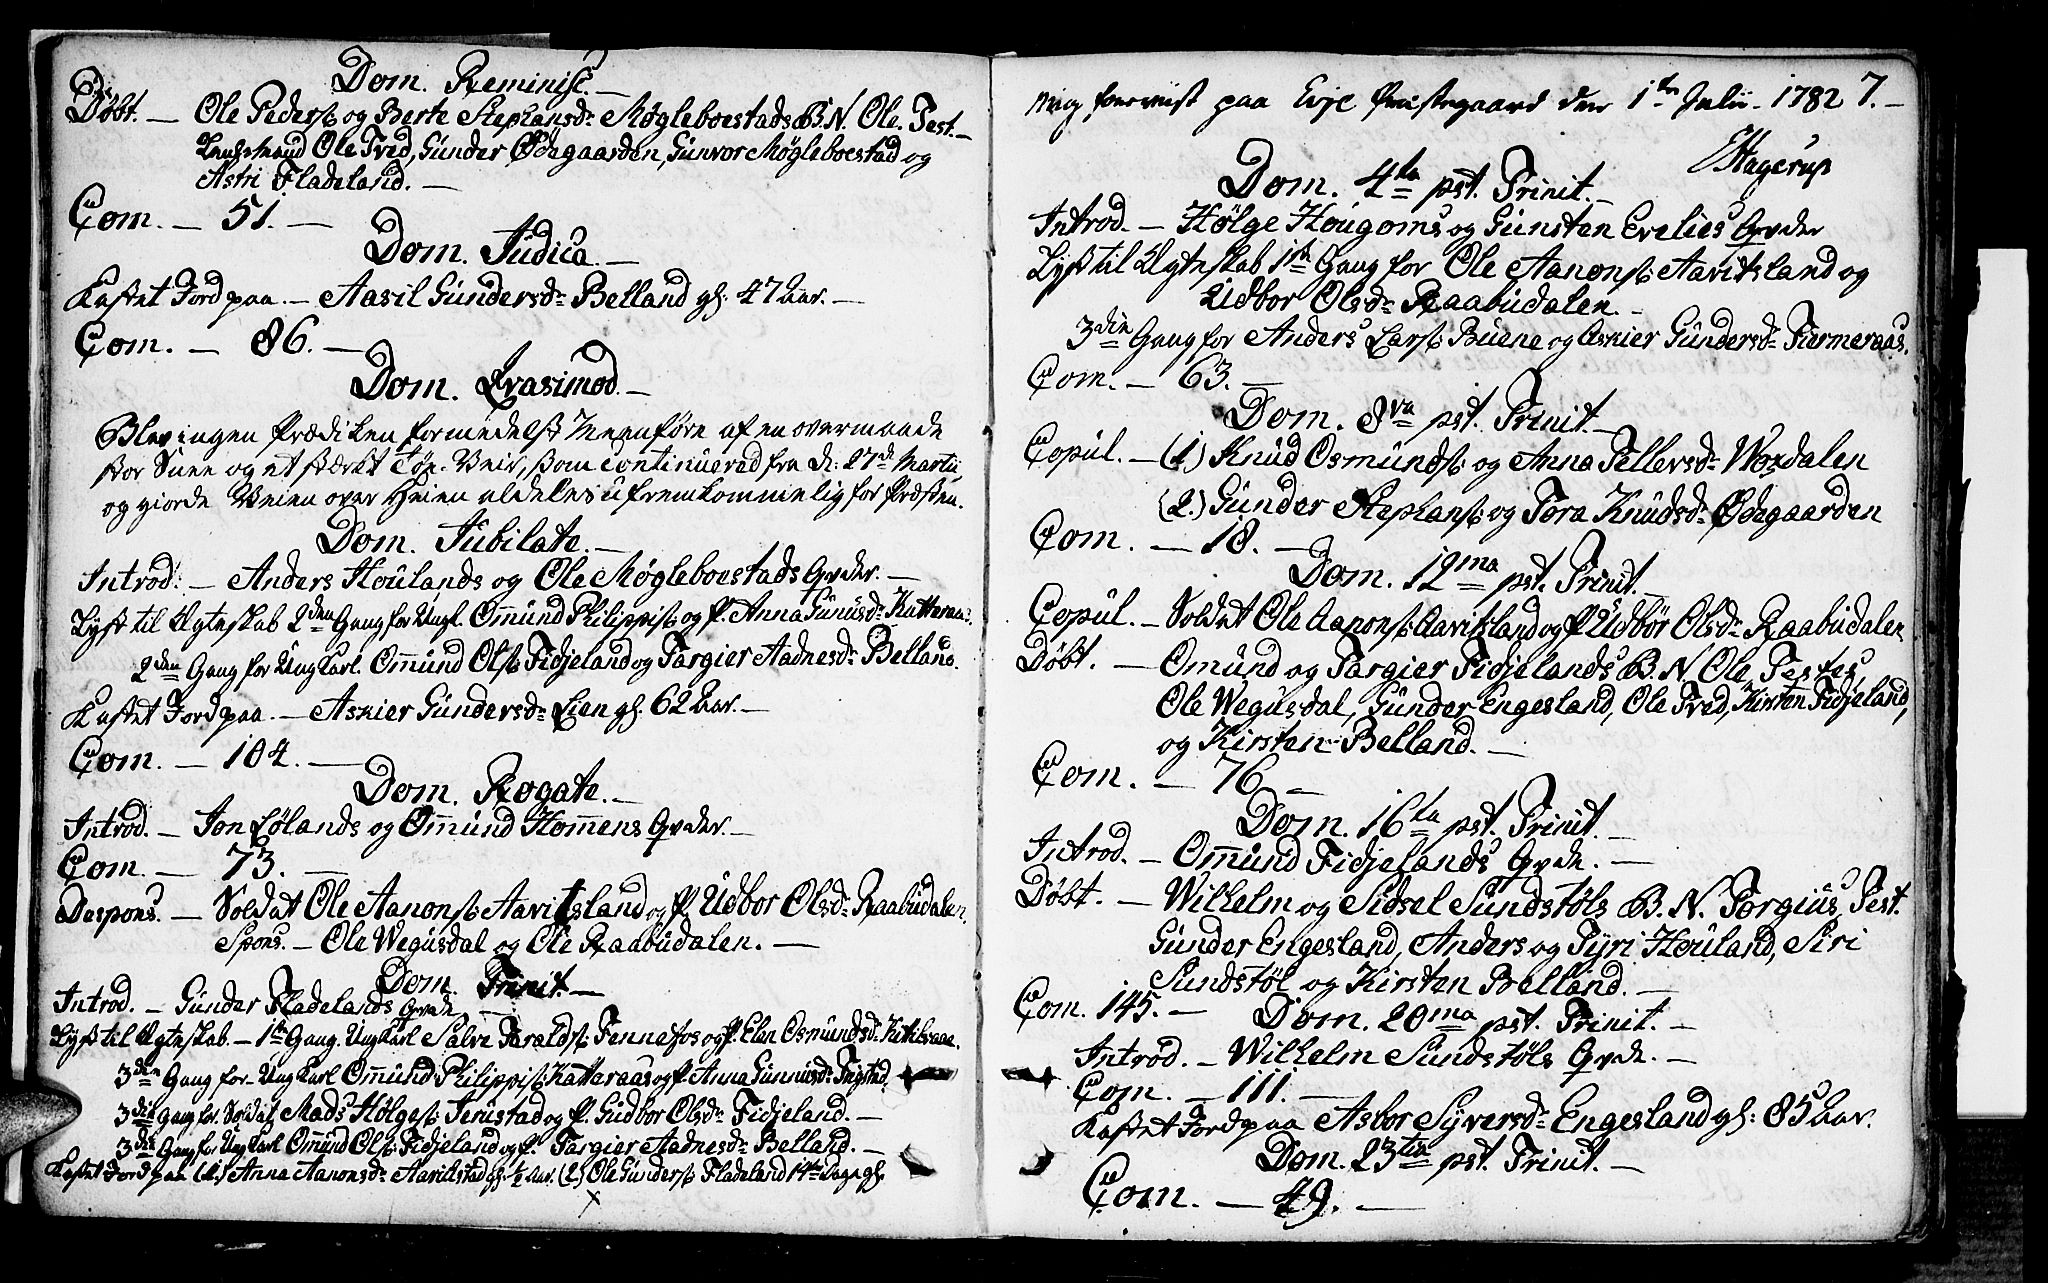 Dom. Reminisc. —
Døbt. — Ole Peders: og Berte Stephansd: Møgleboestads B. N. Ole. Test. —
Lensmand Ole Tved, Gunder Ødegaarden, Gunvor Møgleboestad og
Astri Fladeland. —
Com. — 51. —
Dom. Judica. —
Kastet Jord paa. — Aasil Gundersd: Belland gl: 47 Aar. —
Com. — 86. —
Dom. Qvasimod. —
Blev ingen Prædiken formedelst Meenføre af en overmaade
stor Snee og et stærkt Tøe-Veir, som continuerad fra d: 27d Martii
og giorde Veien over Heien aldeles ufremkommelig for Præsten.
Dom. Jubilate. —
Introd: — Anders Houlands og Ole Møgleboestads Qvder. —
Lyst til Ægteskab 2den Gang for Ungk. Omund Philippis: og P. Anna Gunusd: Katteraas.
2den Gang for Ung Karl. Omund Ols: Fidjeland og Targier Aadnesd: Belland.
Kastet Jord paa. — Askier Gundersd: Lien gl. 62 Aar. —
Com. — 104. —
Dom. Rogate. —
Introd. — Jon Lølands og Omund Homens Qvder. —
Com. — 73. —
Despons. — Soldat Ole Aanons: Aavitsland og P. Udbor Olsd: Raabudalen.
Spons. — Ole Wegusdal og Ole Raabudalen. —
Dom. Trinit. —
Introd. — Gunder Fladelands Qvde
Lyst til Ægteskab. — 1ste Gang. Ung Karl Salve Taralds: Fennefos og P. Elen Osmundsd: Kittilsaae.
3die Gang for Ung Karl Omund Philippis: Katteraas og P. Anna Gunnusd:
3die Gang for Soldat Mads Hølges: Jerustad og P. Gudbor Olsd: Fidjeland. —
3die Gang for Ung Karl Omund Ols: Fidjeland og P. Targier Aadnesd: Belland. —
Kastet Jord paa (1.) Anna Aanonsd: gl: ½ Aar. (2) Ole Gunders: Fladeland 14 Dage gl.
mig foreviist paa Evje Præstegaard den 1te Julii 1782 7. —
Hagerup
Dom. 4ta pst. Trinit. —
Introd. — Hølge Hougoms og Gunstan Evelies Qvder
Lyst til Ægteskab 1ste Gang for Ole Aanons: Aavitsland og
Udbor Olsd: Raabudalen. —
3die Gang for Anders Lars: Buene og Askier Gundersd: Fiermeraas.
Com. — 63. —
Dom. 8va pst. Trinit. —
Copul. — (1) Knud Osmunds: og Anna Tellersd: Wordalen
(2.) Gunder Stephans: og Tora Knudsd: Ødegaarden
Com. — 18. —
Dom. 12ma pst. Trinit. —
Copul. — Soldat Ole Aanons: Aavitsland og P. Udbør Olsd: Raabudalen
Døbt. — Omund og Targier Fidjelands B. N. Ole, Testes
Ole Wegusdal, Gunder Engesland, Ole Tved, Kirsten Fidjeland,
og Kirsten Belland. —
Com. — 76 —
Dom. 16ta pst. Trinit. —
Introd. — Omund Fidjelands Qvde. —
Døbt. — Wilhelm og Sidsel Sundstøls B. N. Torgius Test.
Gunder Engesland, Anders og Tyri Houland, Siri
Sundstøl og Kirsten Belland. —
Com. 145. —
Dom. 20ma pst. Trinit. —
Introd. — Wilhelm Sundstøls Qvde. —
Com. — 111. —
Kastet Jord paa Asbor Syversd: Engesland gl: 85 Aar.
Dom. 23tia pst. Trinit. —
Com. — 49. —